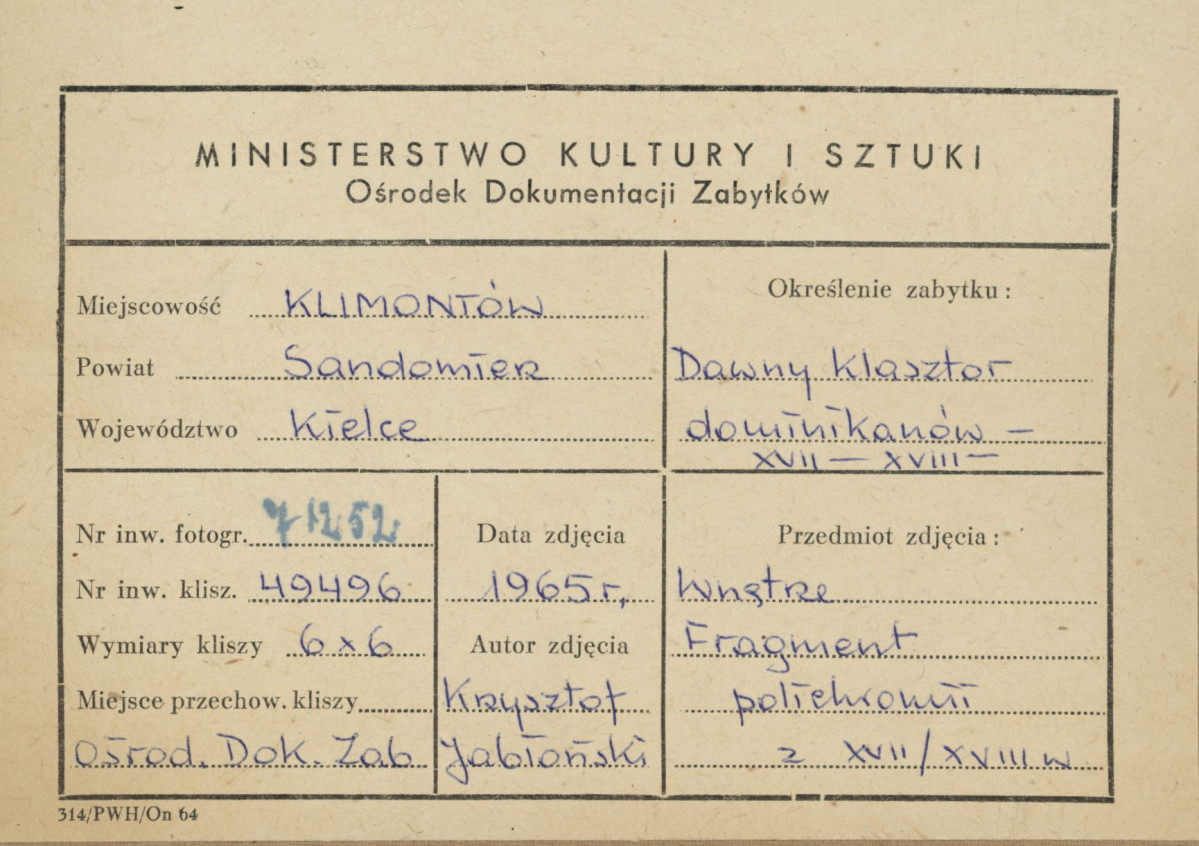 MINISTERSTWO KULTURY I SZTUKI
Ośrodek Dokumentacji Zabytków
Miejscowość KLIMONTÓW
Powiat Sandomierz
Województwo Kielce
Określenie zabytku:
Dawny Klasztor
dominikanów –
XVII – XVIII –
Nr inw. fotogr. 71252
Nr inw. klisz. 49496
Wymiary kliszy 6x6
Miejsce przechow. kliszy
Ośrod. Dok. Zab
Data zdjęcia
1965 r,
Autor zdjęcia
Krzysztof
Jabłoński
Przedmiot zdjęcia:
Wnętrze
Fragment
polichromii
z XVII/XVIII w
314/PWH/On 64